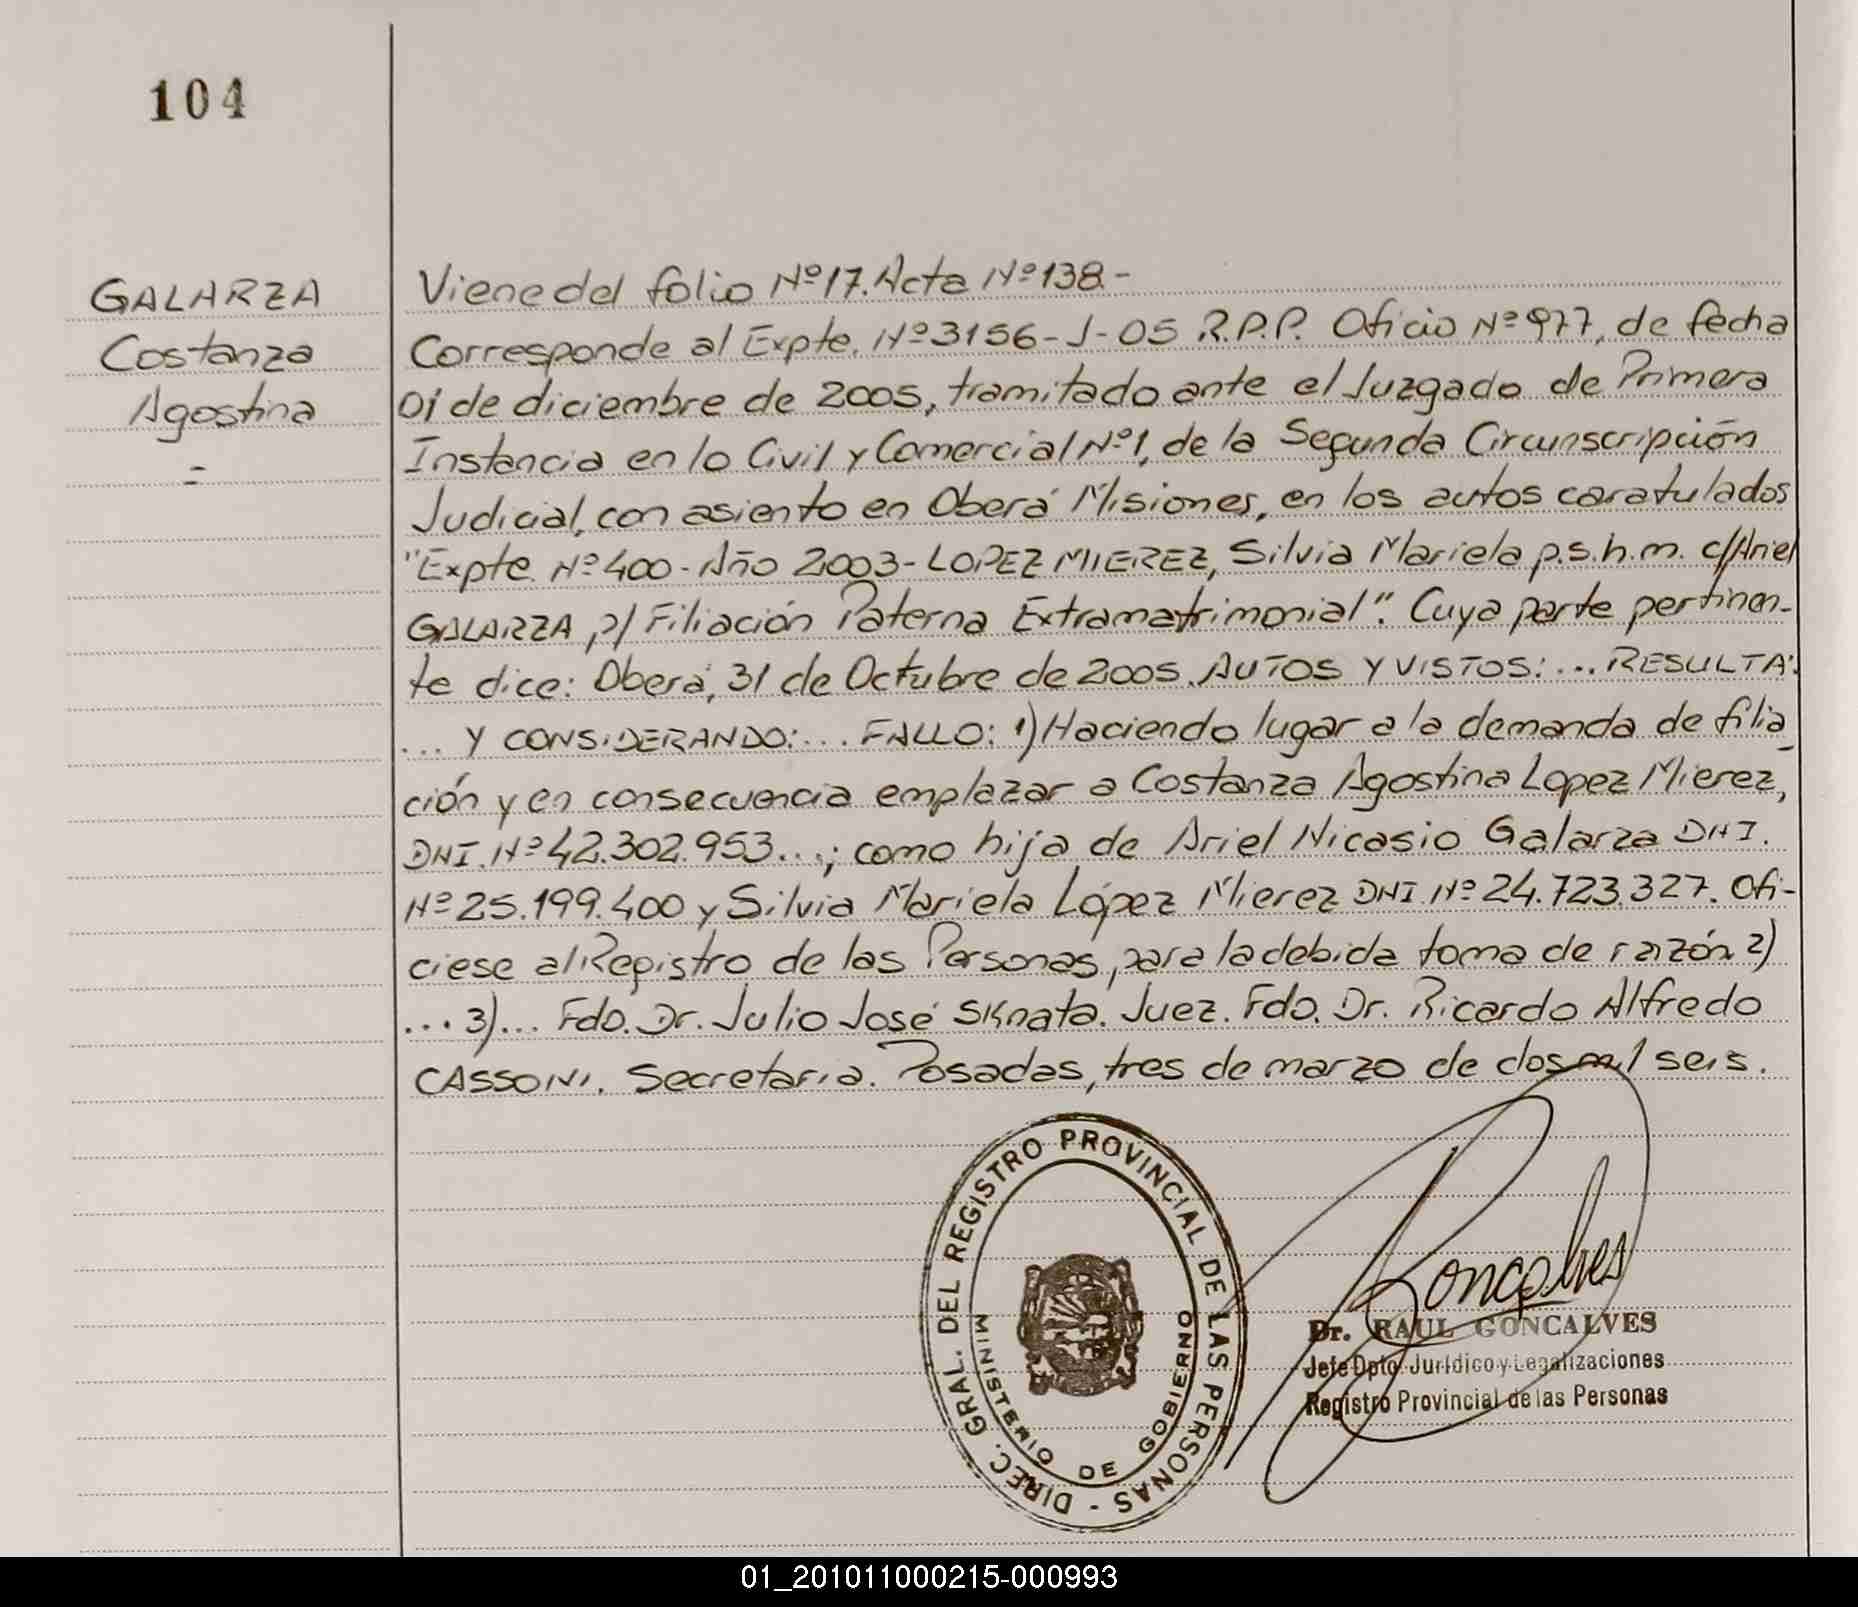 104
GALARZA
Costanza
Agostina
=
Viene del folio Nº17. Acta Nº138.-
Corresponde al Expte. Nº3156-J-05 R.P.P. Oficio Nº977, de fecha
01 de diciembre de 2005, tramitado ante el Juzgado de Primera
Instancia en lo Civil y Comercial Nº1, de la Segunda Circunscripción
Judicial, con asiento en Oberá Misiones, en los autos caratulados
"Expte. Nº400-Año 2003-LOPEZ MIEREZ, Silvia Mariela p.s.h.m. c/Ariel
GALARZA, p/ Filiación Paterna Extramatrimonial". Cuya parte pertinen-
te dice: Oberá, 31 de Octubre de 2005. AUTOS Y VISTOS:... RESULTA:
... Y CONSIDERANDO:... FALLO: 1) Haciendo lugar a la demanda de filia_
ción y en consecuencia emplazar a Costanza Agostina Lopez Mierez,
DNI. Nº42.302.953...; como hija de Ariel Nicasio Galarza DNI.
Nº25.199.400 y Silvia Mariela López Mierez DNI. Nº 24.723.327. Ofi-
ciese al Registro de las Personas, para la debida toma de razón. 2)
... 3)... Fdo. Dr. Julio José Sknata. Juez. Fdo. Dr. Ricardo Alfredo
CASSONI. Secretaria. Posadas, tres de marzo de dos mil seis.
DIREC. GRAL. DEL REGISTRO PROVINCIAL DE LAS PERSONAS -
MINISTERIO DE GOBIERNO
Goncalves
Dr. RAUL GONCALVES
Jefe Dpto. Jurídico y Legalizaciones
Registro Provincial de las Personas
01_201011000215-000993